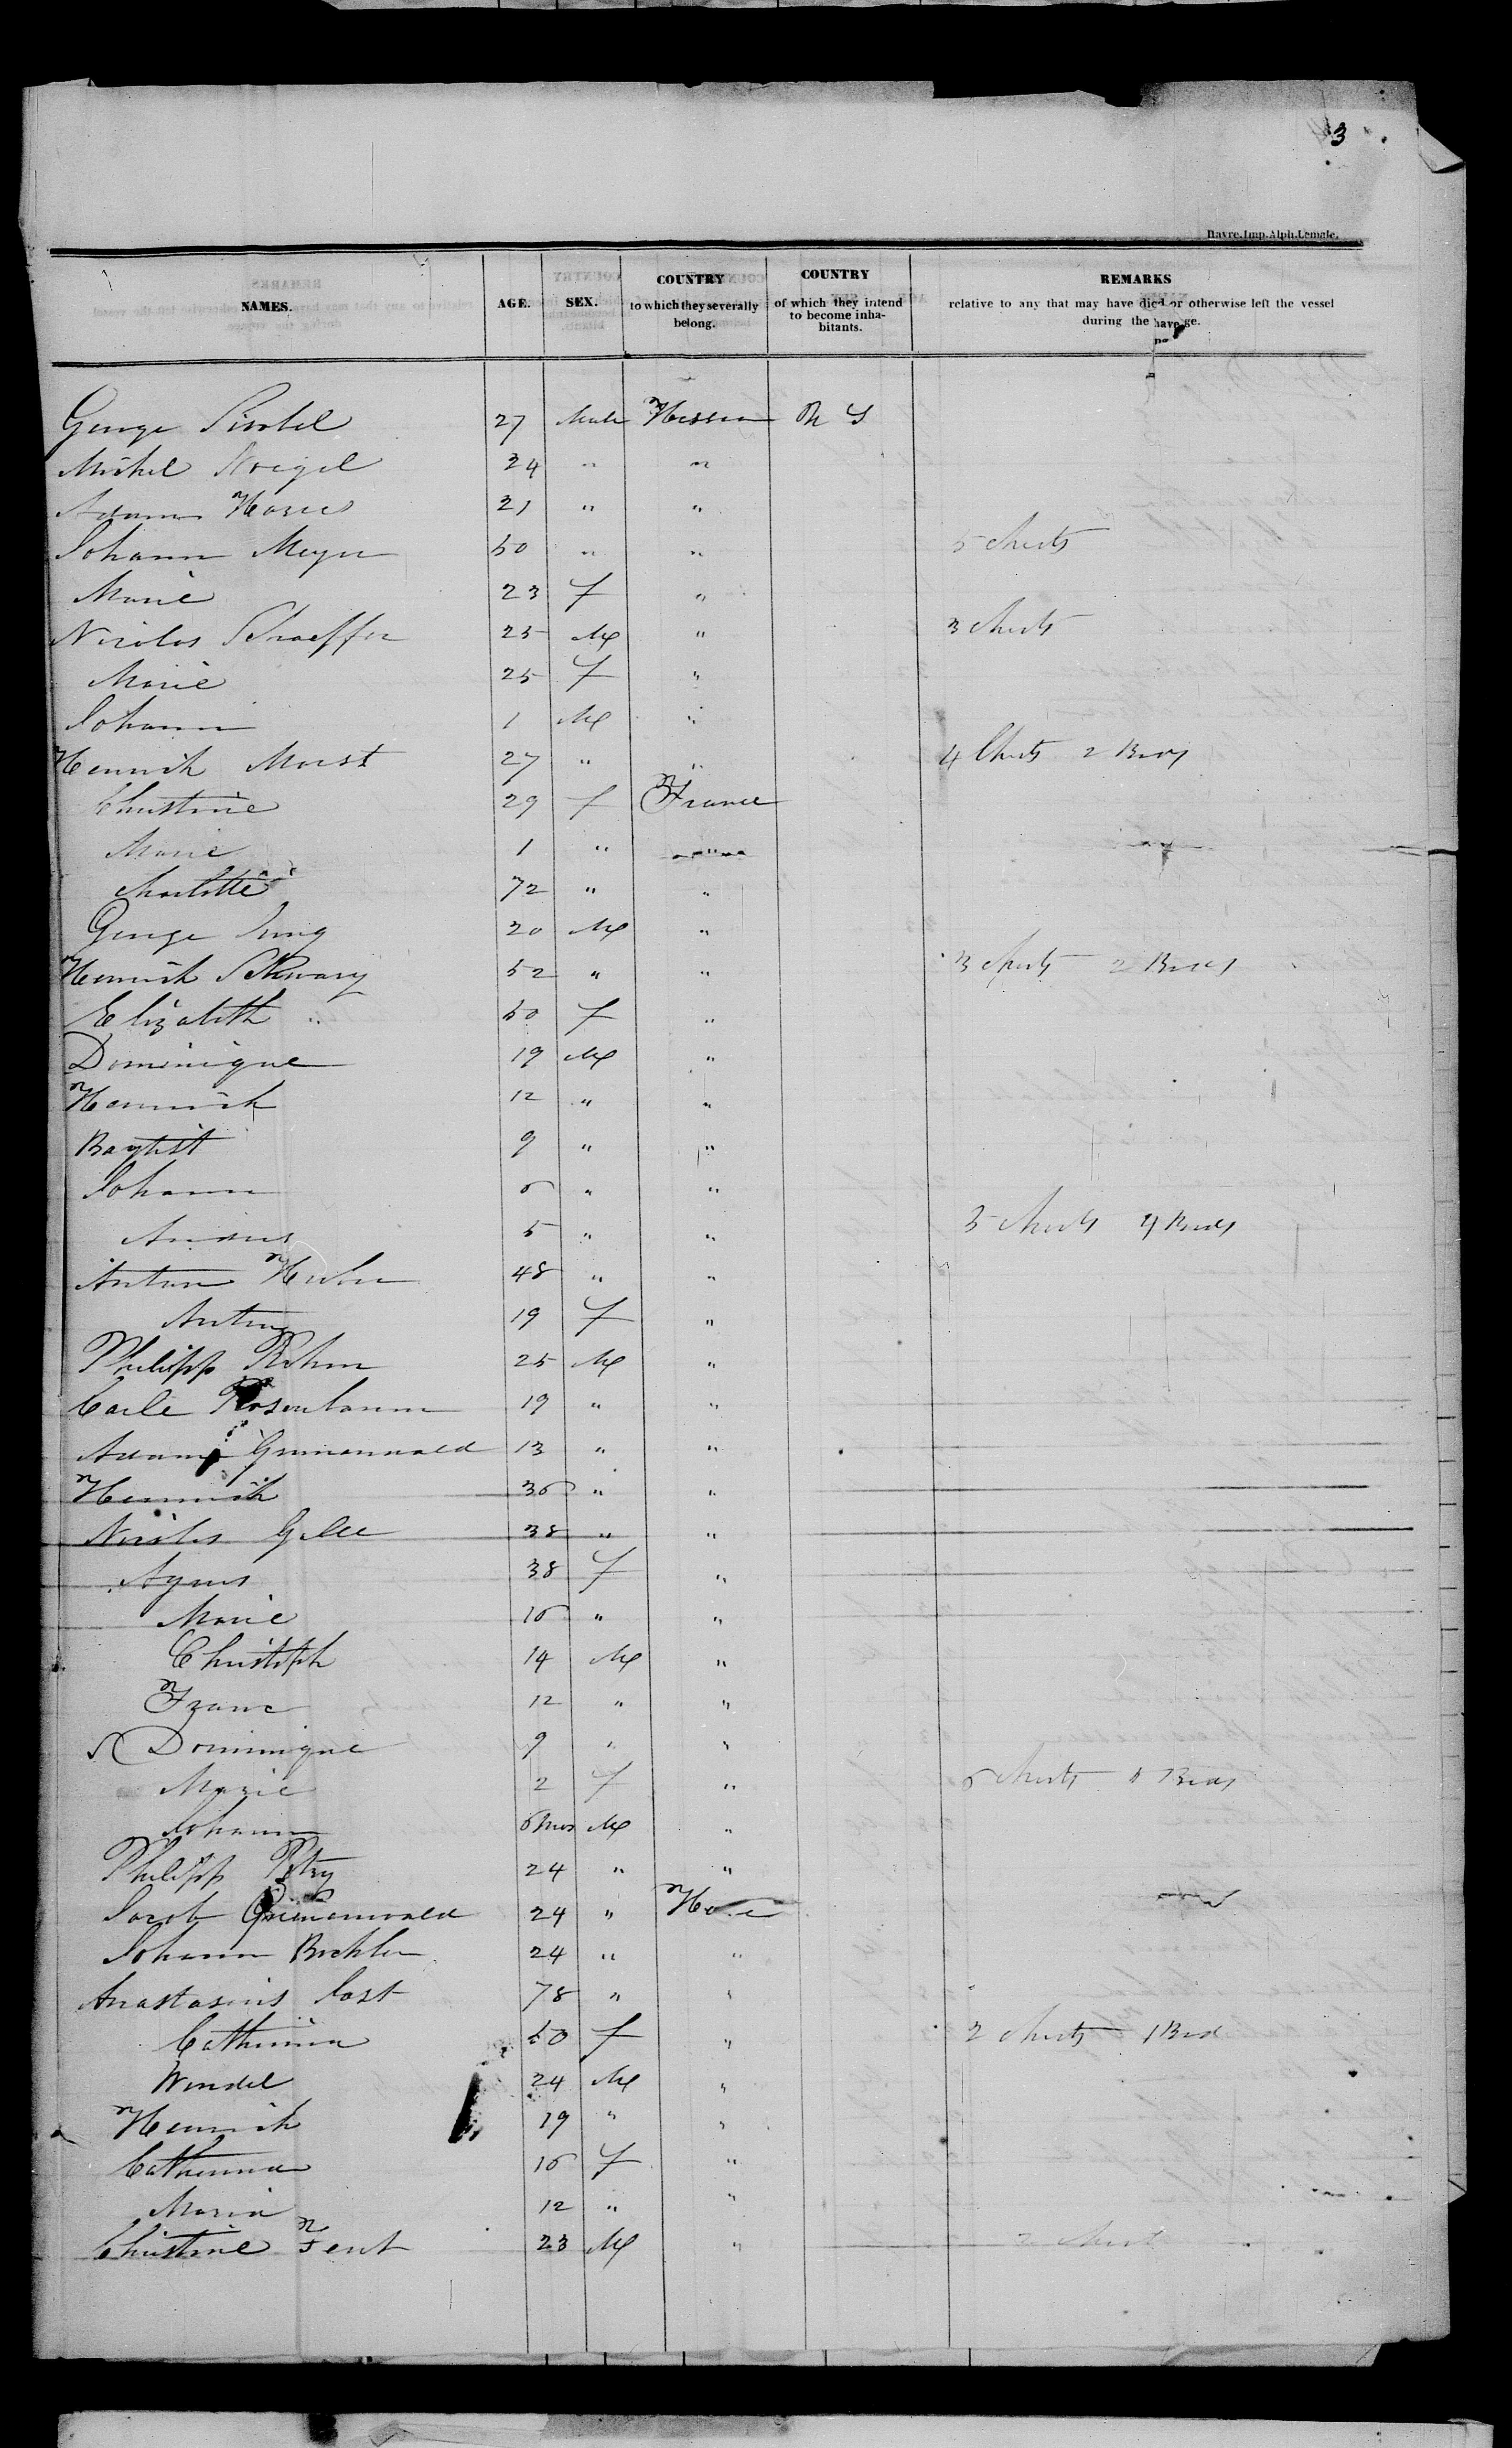 3
Havre.Imp.Alph.Lemale.
NAMES. AGE. SEX. COUNTRY to which they severally belong. COUNTRY of which they intend to become inhabitants. REMARKS relative to any that may have died or otherwise left the vessel during the
George 27 Male Hessen
Michel 24 " "
Adam 21 " "
Johann Meyer 50 " " 5 Chests
Marie 23 f "
Nicolas Schaeffer 25 M " 3 Chests
Marie 25 f "
Johann 1 M "
Heinrich Moist 27 " " 4 Chests 2 Beds
Christine 29 f France
Marie 1 " "
Charlotte 72 " "
George Jung 20 M "
Heinrich Schwarz 52 " " 3 Chests 2 Beds
Elizabeth " 50 f "
Dominique 19 M "
Heinrich 12 " "
Baptist 9 " "
Johann 6 " "
5 " " Chests 4 Beds
Anton 48 " "
19 f "
Philipp 25 M "
Carle Rosenbaum 19 " "
Adam Grunenwald 13 " "
Heinrich 36 " "
Nicolas 38 " "
Agnes 38 f "
Marie 16 " "
Christoph 14 M "
Franc 12 " "
Dominique 9 " "
Marie 2 f " 6 Chests Beds
Johann 6 mos M "
Philipp Petry 24 " "
Jacob Grunenwald 24 "
Johann 24 " "
Anastasius Jost 78 " "
Catherina 50 f " 2 Chests 1 Bed
Wendel 24 M "
Heinrich 19 " "
Catherina 16 f "
Maria 12 " "
Christine Fent 23 M " 2 Chest